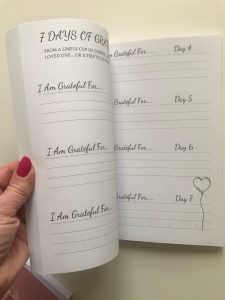 7 DAYS OF
FROM A SIMPLE CUP OF
LOVED ONE... OR A TRIP
I Am Grateful For...
I Am Grateful For...
I Am Grateful For...
I Am Grateful For...
Grateful For... Day 4
Grateful For... Day 5
Grateful For... Day 6
Grateful For... Day 7